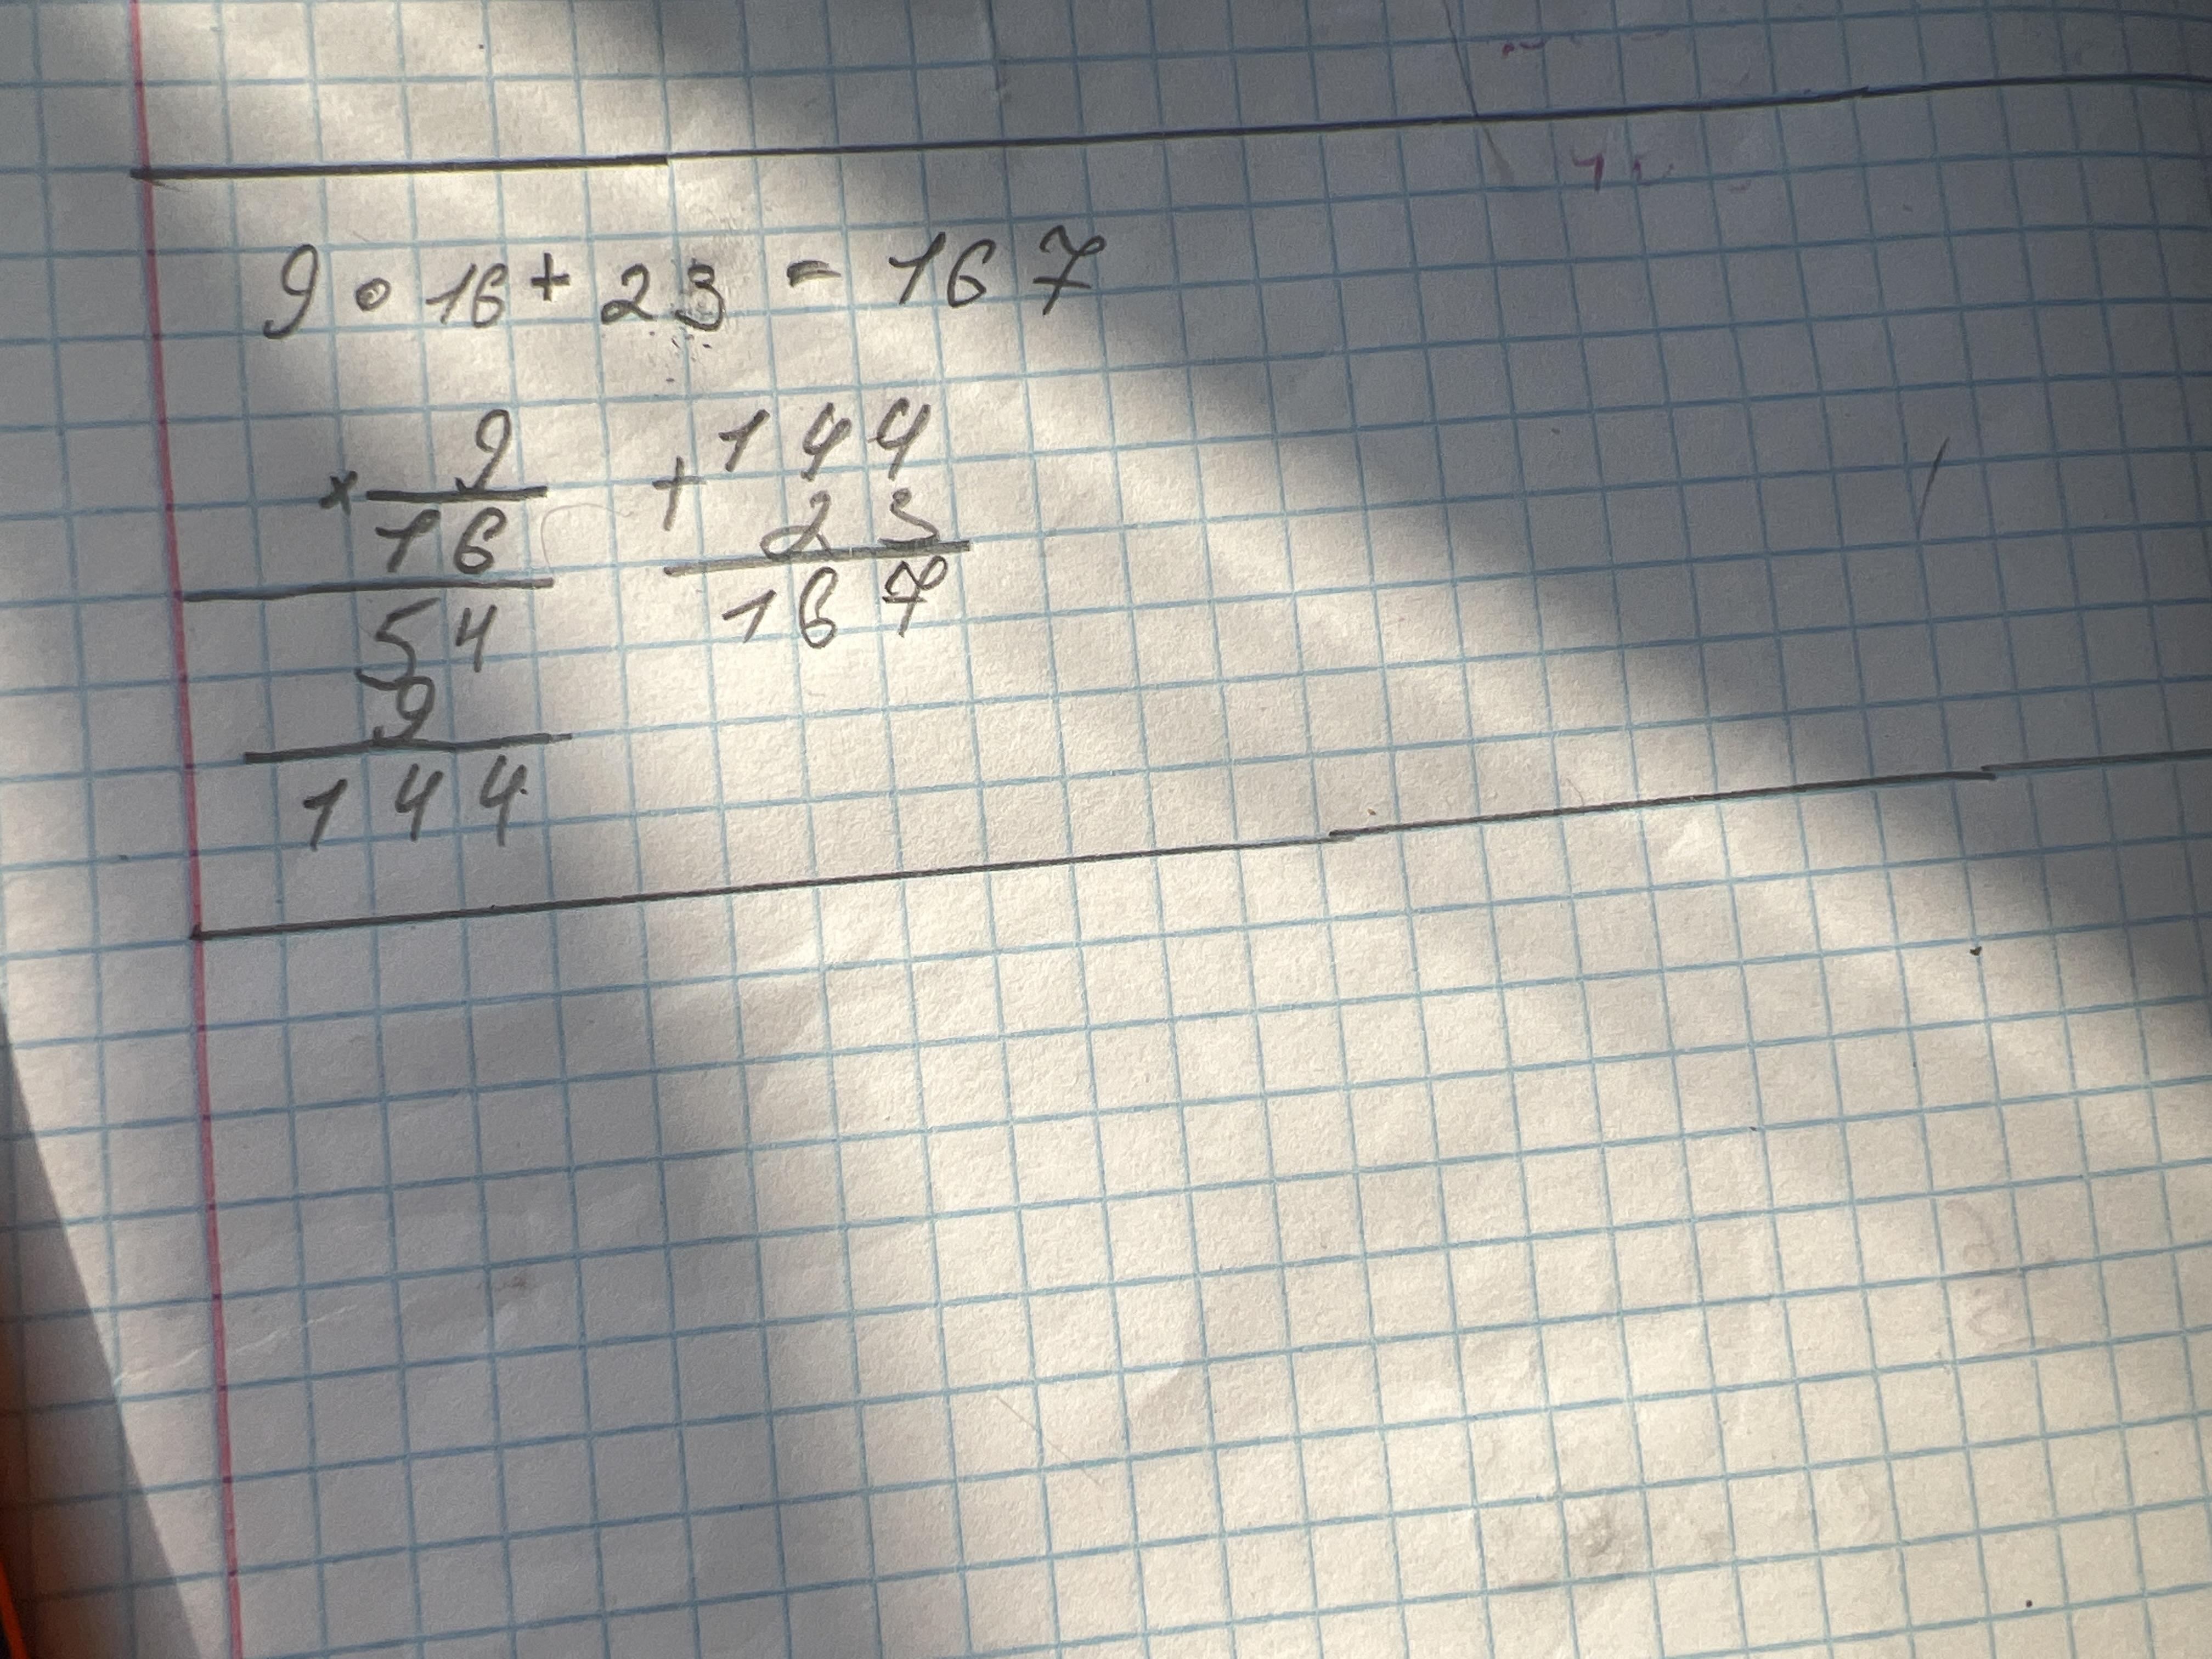 9 · 16 + 23 = 167
× 9
16
54
9
144
+ 144
23
167